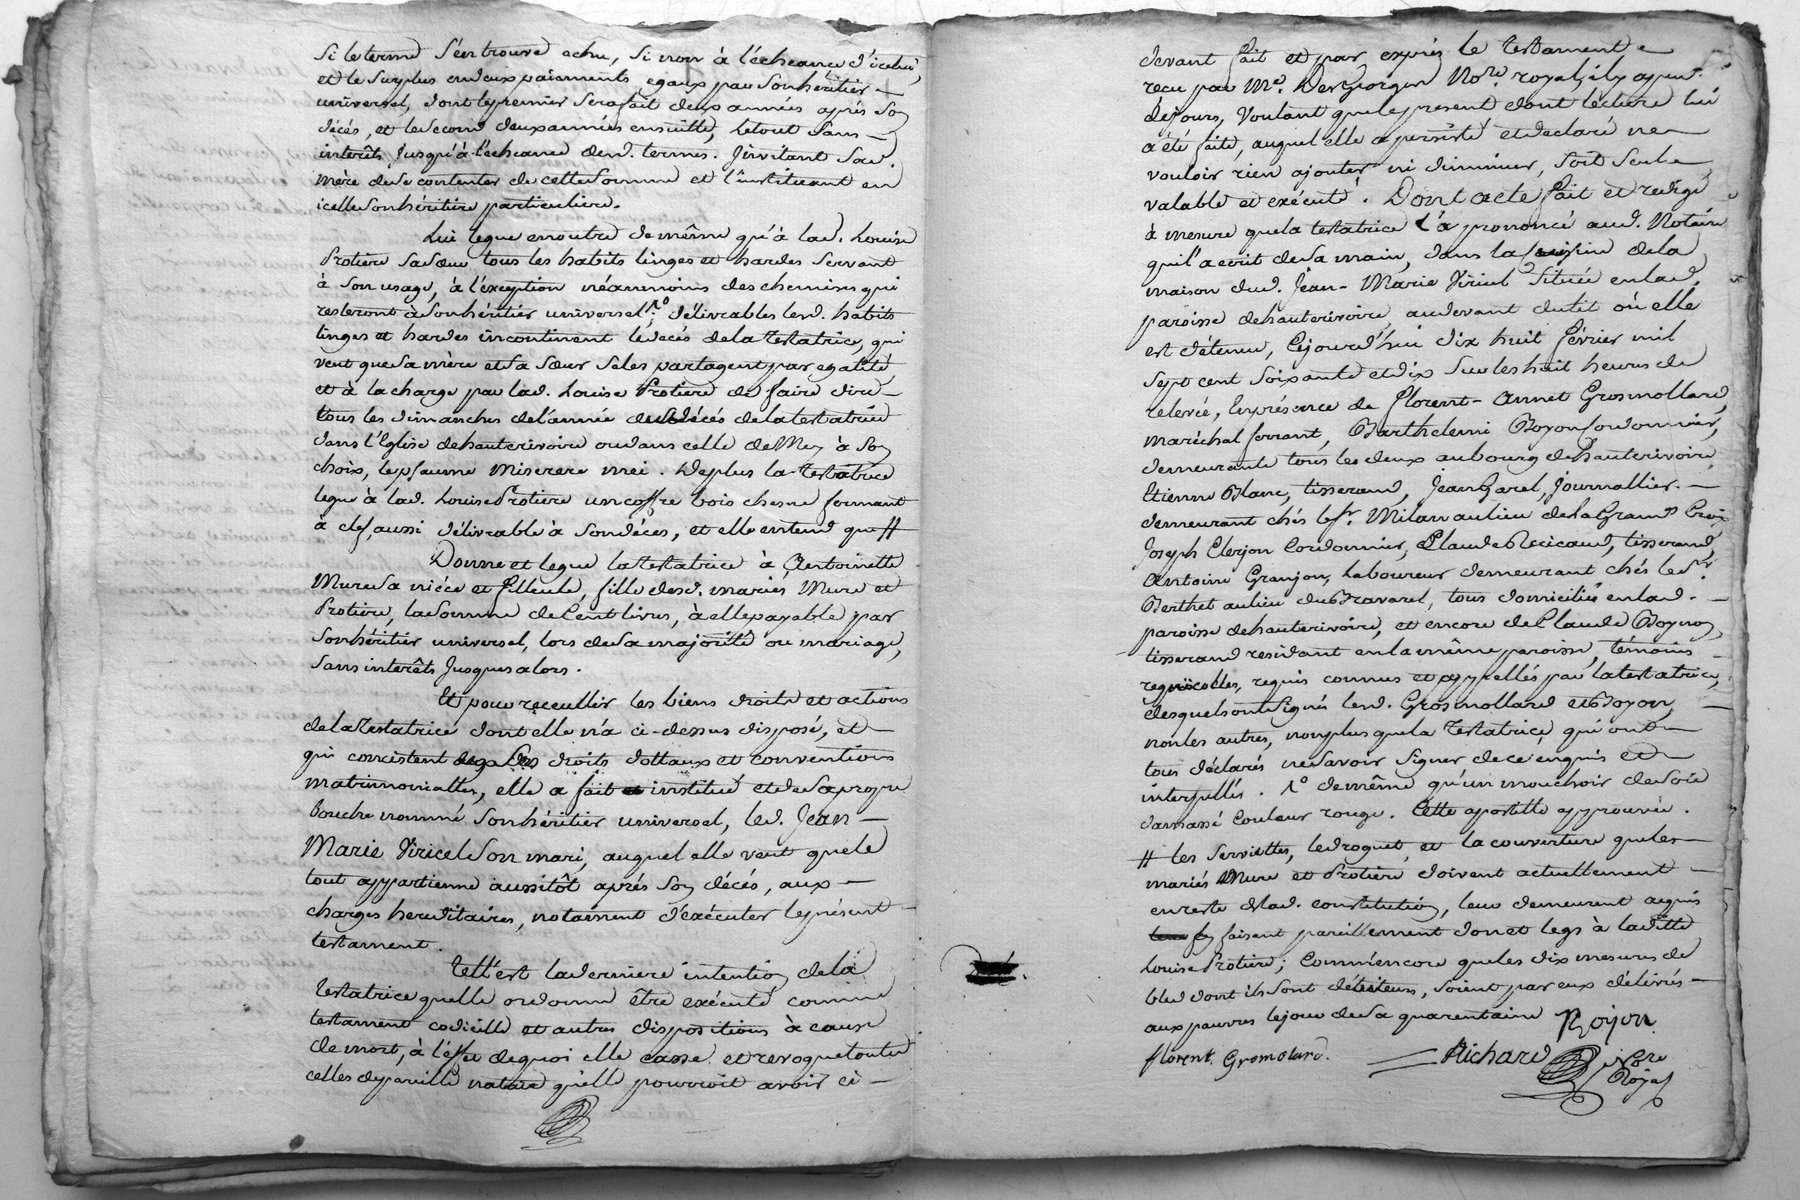 si le terme s'en trouve echu, si non à l'écheance d'icelui,
et le surplus en deux paiements egaux par son héritier
universel, dont le premier sera fait deux années après son
décés, et le second deux années ensuitte, le tout sans
interêts jusqu'à l'echeance desd. termes. Invitant sad.
mère de se contenter de cette somme et l'instituant en
icelle son héritière particuliere.
Lui legue en outre de même qu'à lad. Louise
Protiere sa sœur tous les habits linges et hardes servant
à son usage, à l'éxeption néanmoins des chemises qui
resteront à son héritier universel 1°. délivrables lesd. habits
linges et hardes incontinent le decés de la testatrice, qui
veut que sa mère et sa sœur se les partagent par egalité,
et à la charge par lad. Louise Protiere de faire dire
tous les dimanches de l'année du décés de la testatrice
dans l'Eglise de hauterivoire ou dans celle de Mey à son
choix, le psaume Miserere mei. De plus la testatrice
legue à lad. Louise Protiere un coffre bois chesne fermant
à clef, aussi délivrable à son décés, et elle entend que #
Donne et legue la testatrice à Antoinette
Mure sa niéce et filleule, fille desd. mariés Mure et
Protiere, la somme de Cent livres, à elle payable par
son héritier universel, lors de sa majorité ou mariage,
sans interêts jusques alors.
Et pour receuillir les biens droits et actions
de la testatrice dont elle n'a ci-dessus disposé, et
qui concistent en ses droits dottaux et conventions
matrimonialles, elle a fait institué et de sa propre
bouche nommé son héritier universel, led. Jean
Marie Viricel son mari, auquel elle veut que le
tout appartienne aussitôt aprés son décés, aux
charges hereditaires, notament d'exécuter le présent
testament.
Tell'est la derniere intention de la
testatrice quelle ordonne être exécuté comme
testament codicille et autres dispositions à cause
de mort, à l'effet de quoi elle casse et revoque toutes
celles de pareille nature qu'elle pourroit avoir ci
devant fait et par exprés le testament
recu par Me. Desgiorges Nore. royal, il y a peu
de jours, Voulant que le present dont lecture lui
a été faite, auquel elle a persisté et declaré ne
vouloir rien ajouter ni diminuer, soit seul
valable et exécuté. Dont acte fait et redigé
à mesure que la testatrice l'a prononcé aud. Notaire
qui l'a ecrit de sa main, dans la cuisine de la
maison dud. Jean-Marie Viricel située en lad.
paroisse de hauterivoire, au devant du lit où elle
est détenue, Cejourd'hui dix huit février mil
sept cent soixante et dix sur les huit heures de
relevée, En présence de Florent-Annet Grosmollard,
maréchal ferrant, Barthelemi Boyon cordonnier,
demeurants tous les deux au bourg de hauterivoire,
Etienne Blanc, tisserand, Jean Garel, Journallier
demeurant chés le Sr. Milan au lieu de la Grand Croix
Joseph Clerjon Cordonnier, Claude Bricaud, tisserand,
Antoine Granjon, Laboureur demeurant chés le Sr.
Berthet au lieu du Bravard, tous domiciliés en lad.
paroisse de hauterivoire, et encore de Claude Boyron
tisserand residant en la même paroisse, témoins
regnicolles, requis connus et appellés par la testatrice,
desquels ont signés lesd. Grosmollard et Boyon,
non les autres, non plus que la Testatrice, qui ont
tous déclarés ne savoir signer de ce enquis et
interpellés. 1° de même qu'un mouchoir de soie
damassé couleur rouge. Cette apostille approuvée.
# les serviettes, le droguet, et la couverture que les
mariés Mure et Protiere doivent actuellement
en reste de lad. constitution, leur demeurent acquis
faisant pareillement don et legs à laditte
Louise Protiere; Comm'encore que les dix mesures de
bled dont ils sont détenteurs, soient par eux délivrés
aux pauvres le jour de sa quarantaine
Boyon.
florent. Gromolard.
Richard
Nore
Royal